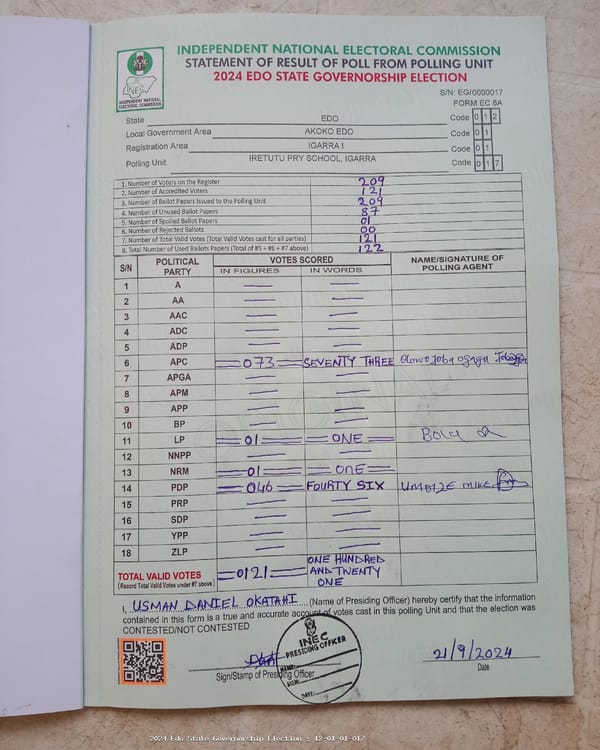 INDEPENDENT NATIONAL ELECTORAL COMMISSION
STATEMENT OF RESULT OF POLL FROM POLLING UNIT
2024 EDO STATE GOVERNORSHIP ELECTION
INEC
INDEPENDENT NATIONAL ELECTORAL COMMISSION
S/N: EG/0000017
FORM EC 8A
State EDO Code 0 1 2
Local Government Area AKOKO EDO Code 0 1
Registration Area IGARRA I Code 0 1
Polling Unit IRETUTU PRY SCHOOL, IGARRA Code 0 1 7
1. Number of Voters on the Register 209
2. Number of Accredited Voters 121
3. Number of Ballot Papers Issued to the Polling Unit 209
4. Number of Unused Ballot Papers 87
5. Number of Spoiled Ballot Papers 01
6. Number of Rejected Ballots 00
7. Number of Total Valid Votes (Total Valid Votes cast for all parties) 121
8. Total Number of Used Ballots Papers (Total of #5 + #6 + #7 above) 122
S/N POLITICAL PARTY VOTES SCORED NAME/SIGNATURE OF POLLING AGENT
IN FIGURES IN WORDS
1 A
2 AA
3 AAC
4 ADC
5 ADP
6 APC 073 SEVENTY THREE
7 APGA
8 APM
9 APP
10 BP
11 LP 01 ONE Bola
12 NNPP
13 NRM 01 ONE
14 PDP 046 FOURTY SIX UMOZE MIKE
15 PRP
16 SDP
17 YPP
18 ZLP
TOTAL VALID VOTES (Record Total Valid Votes under #7 above) 0121 ONE HUNDRED AND TWENTY ONE
I, USMAN DANIEL OKATAHI (Name of Presiding Officer) hereby certify that the information
contained in this form is a true and accurate account of votes cast in this polling Unit and that the election was
CONTESTED/NOT CONTESTED
INEC
PRESIDING OFFICER
NAME:
SIGN:
DATE:
Sign/Stamp of Presiding Officer
21/9/2024
Date
2024 Edo State Governorship Election : 12-01-01-017